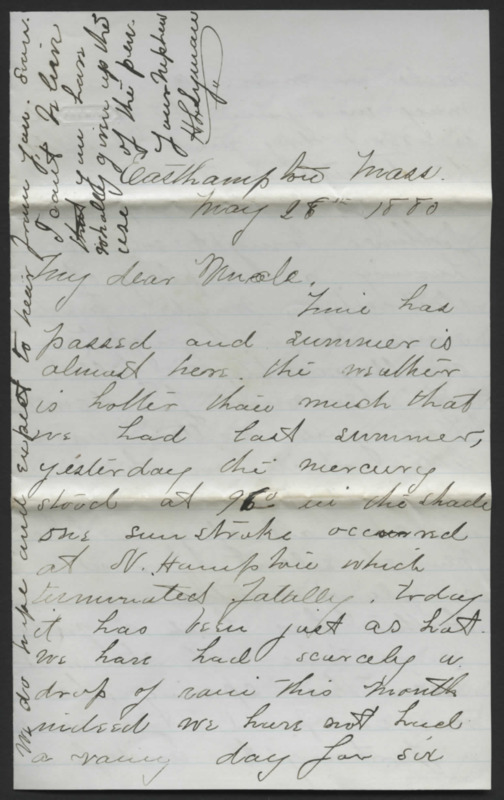 Easthampton Mass.
May 28th 1880
My dear Uncle.
Time has
passed and summer is
almost here. the weather
is hotter than much that
we had last summer,
yesterday the mercury
stood at 96° in the shade
one sun stroke occurred
at N. Hampton which
terminated fatally. today
it has been just as hot.
we have had scarcely a
drop of rain this month
indeed we have not had
a rainy day for six
We do hope and expect to hear from you. Sure.
I can't believe
that you have
wholly given up the
use of the pen.
Your Nephew
Lyman